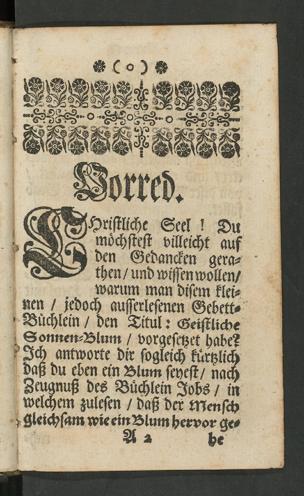 (o)
Vorred.
CHristliche Seel! Du
möchstest villeicht auf
den Gedancken gera-
then / und wissen wollen /
warum man disem klei-
nen / jedoch ausserlesenen Gebett-
Büchlein / den Titul: Geistliche
Sonnen-Blum / vorgesetzet habe?
Ich antworte dir sogleich kürtzlich
daß du eben ein Blum seyest / nach
Zeugnuß des Büchlein Jobs / in
welchem zulesen / daß der Mensch
gleichsam wie ein Blum hervor ge-
A 2 he